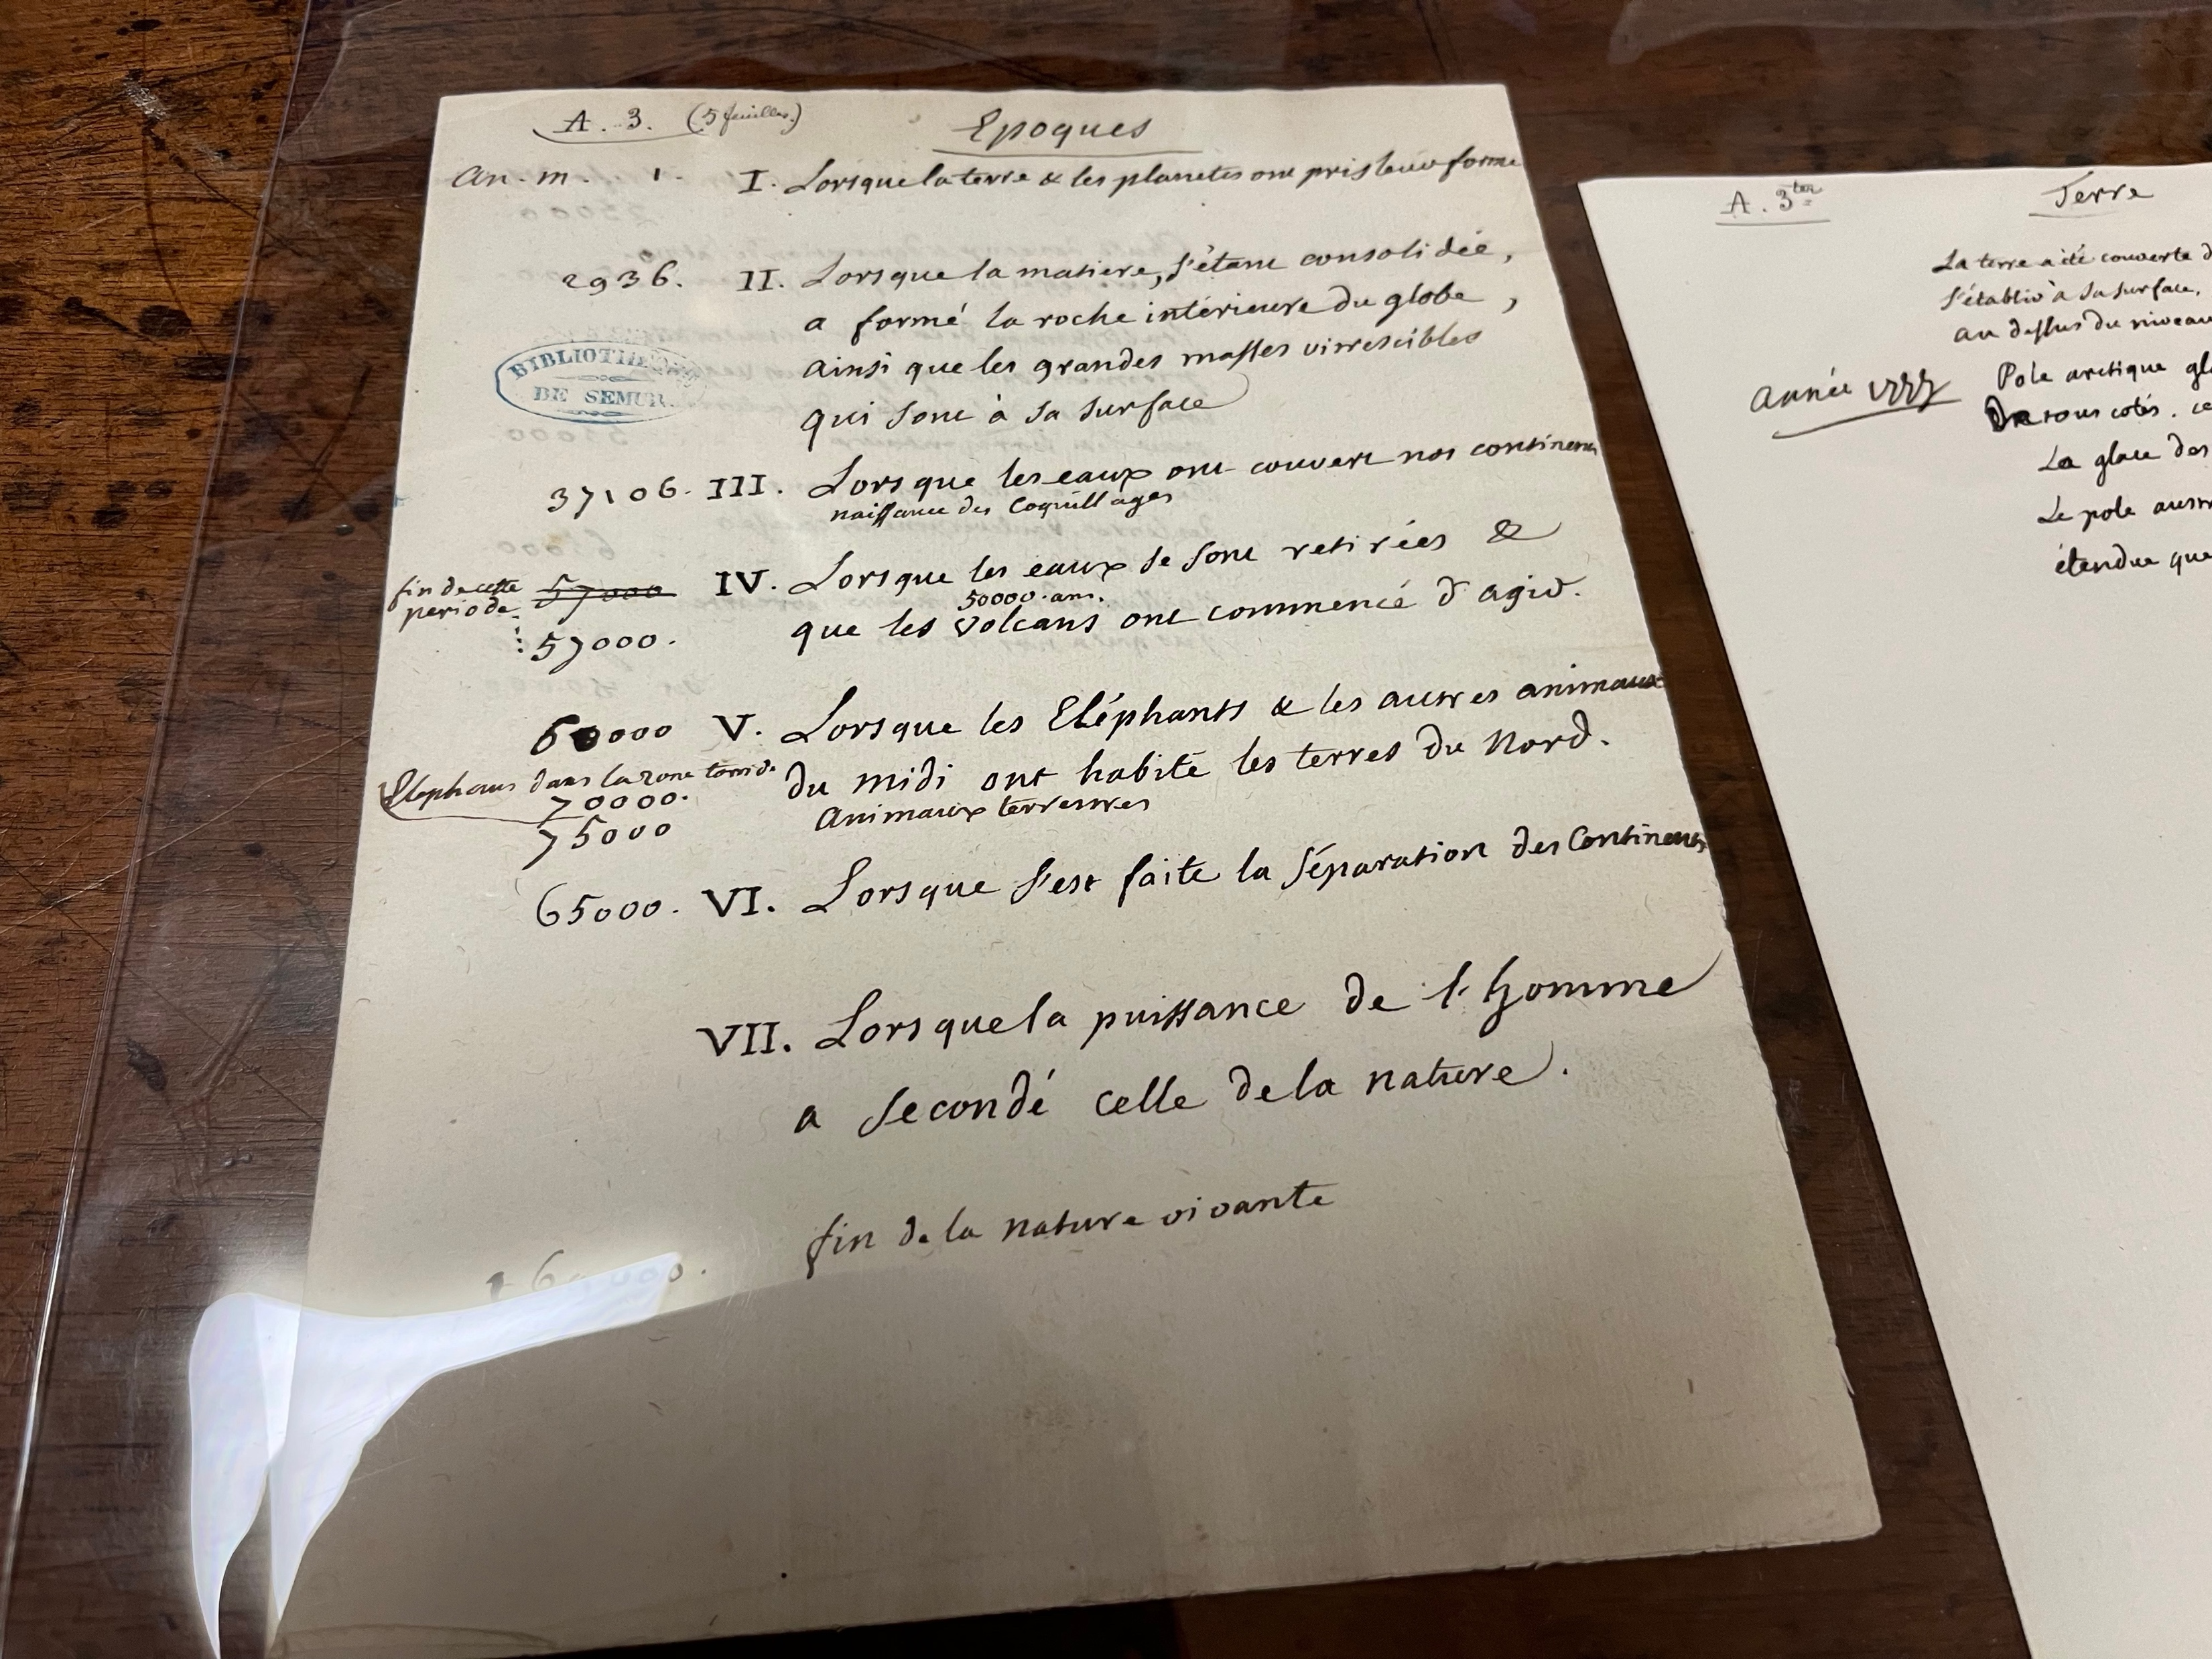 A. 3. (5 feuilles.)
Epoques
An. m. 1. I. Lorsque la terre & les planetes ont pris leur forme
2936. II. Lorsque la matiere, s'étant consolidée,
a formé la roche intérieure du globe,
ainsi que les grandes masses vitrescibles
qui sont à sa surface
BIBLIOTHEQUE
DE SEMUR.
37106. III. Lorsque les eaux ont couvert nos continents
naissance des Coquillages
fin de cette periode 57000 IV. Lorsque les eaux se sont retirées &
50000 ans.
57000. que les volcans ont commencé d'agir.
60000 V. Lorsque les Eléphants & les autres animaux
du midi ont habité les terres du Nord.
Elephans dans la zone torride
70000.
Animaux terrestres
75000
65000. VI. Lorsque s'est faite la séparation des Continents
VII. Lorsque la puissance de l'homme
a secondé celle de la nature.
fin de la nature vivante
A. 3ter
Terre
La terre a été couverte d
s'établir à sa surface,
au dessus du niveau
année 1777 Pole arctique gla
De tous cotés. ce
La glace des
Le pole austr
étendue que